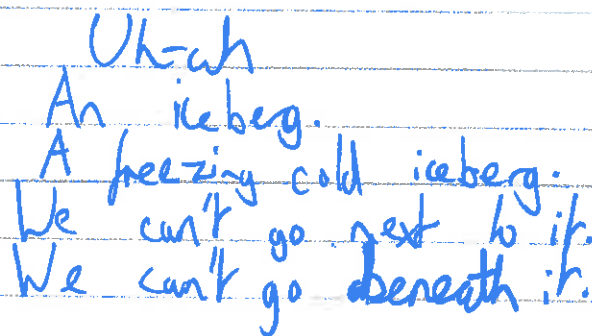 Uh-uh
An iceberg.
A freezing cold iceberg.
We can't go next to it.
We can't go beneath it.